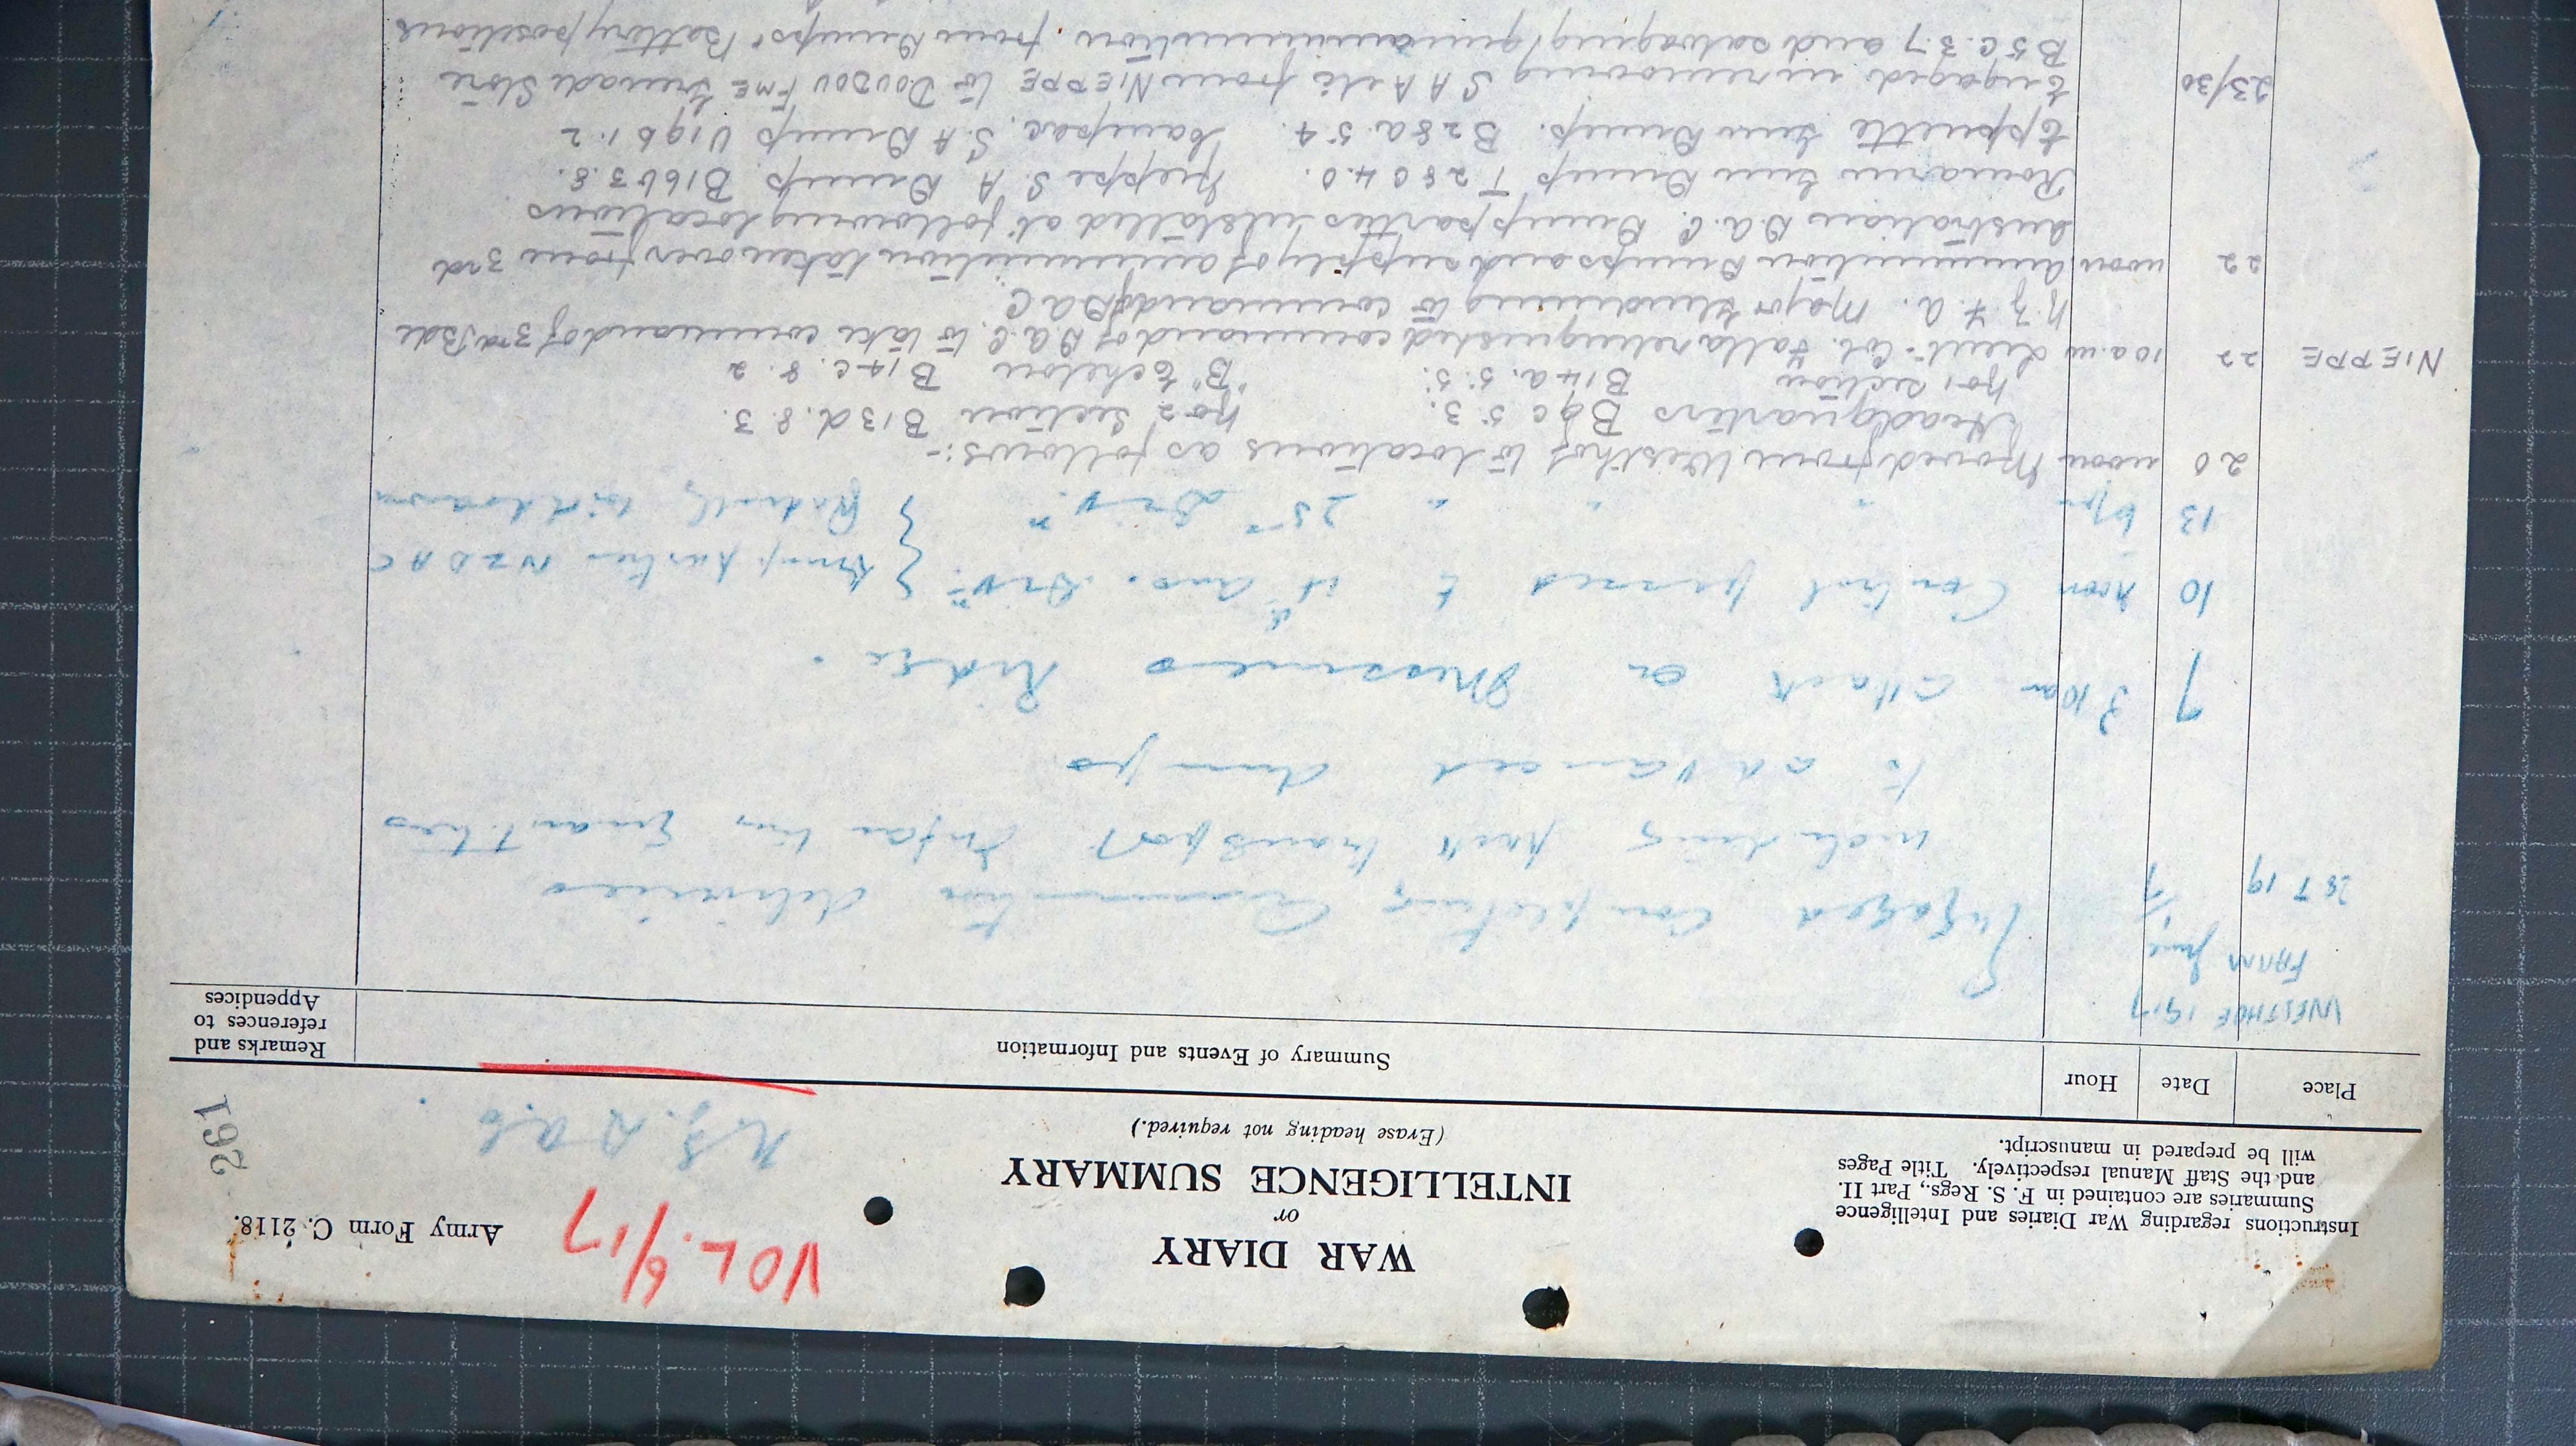 Army Form C. 2118.
VOL. 6/17
WAR DIARY
or
INTELLIGENCE SUMMARY
(Erase heading not required.)
Instructions regarding War Diaries and Intelligence
Summaries are contained in F. S. Regs., Part II.
and the Staff Manual respectively. Title Pages
will be prepared in manuscript.
N.Z. D.A.C.
261
Place Date Hour Summary of Events and Information Remarks and references to Appendices
WESTHOF 1917
FARM June
28 T 19 1/7 Engaged completing Ammunition deliveries
including pack transport Infantry quantities
to advanced dumps
7 3 10 am Attack on Messines Ridge.
10 noon Control passed to 4th Aus. Divn. } Dump parties NZDAC
13 6 pm " " " 25th Divn } Gradually withdrawn
20 noon Moved from Westhof to locations as follows:-
Headquarters B9c 5.3. No 2 Section B13d. 8.3
No 1 Section B14a. 5.5. "B" Echelon B14c. 8.2
NIEPPE 22 10 a.m Lieut-Col. Falla relinquished command of D.A.C. to take command of 3rd Bde
N.Z.F.A. Major assuming command of DAC.
22 noon Ammunition Dumps and supply of ammunition taken over from 3rd
Australian D.A.C. Dump parties installed at following locations
Romarin Gun Dump T28c 4.0. Nieppe S.A Dump B16b 3.8.
Gun Dump. B28a. 5.4 S.A Dump U19b 1.2
23/30 Engaged in removing S A A etc from NIEPPE to DOUDOU FME Grenade Store
B5c. 3.7 and salvaging gun ammunition from Dumps & Battery positions